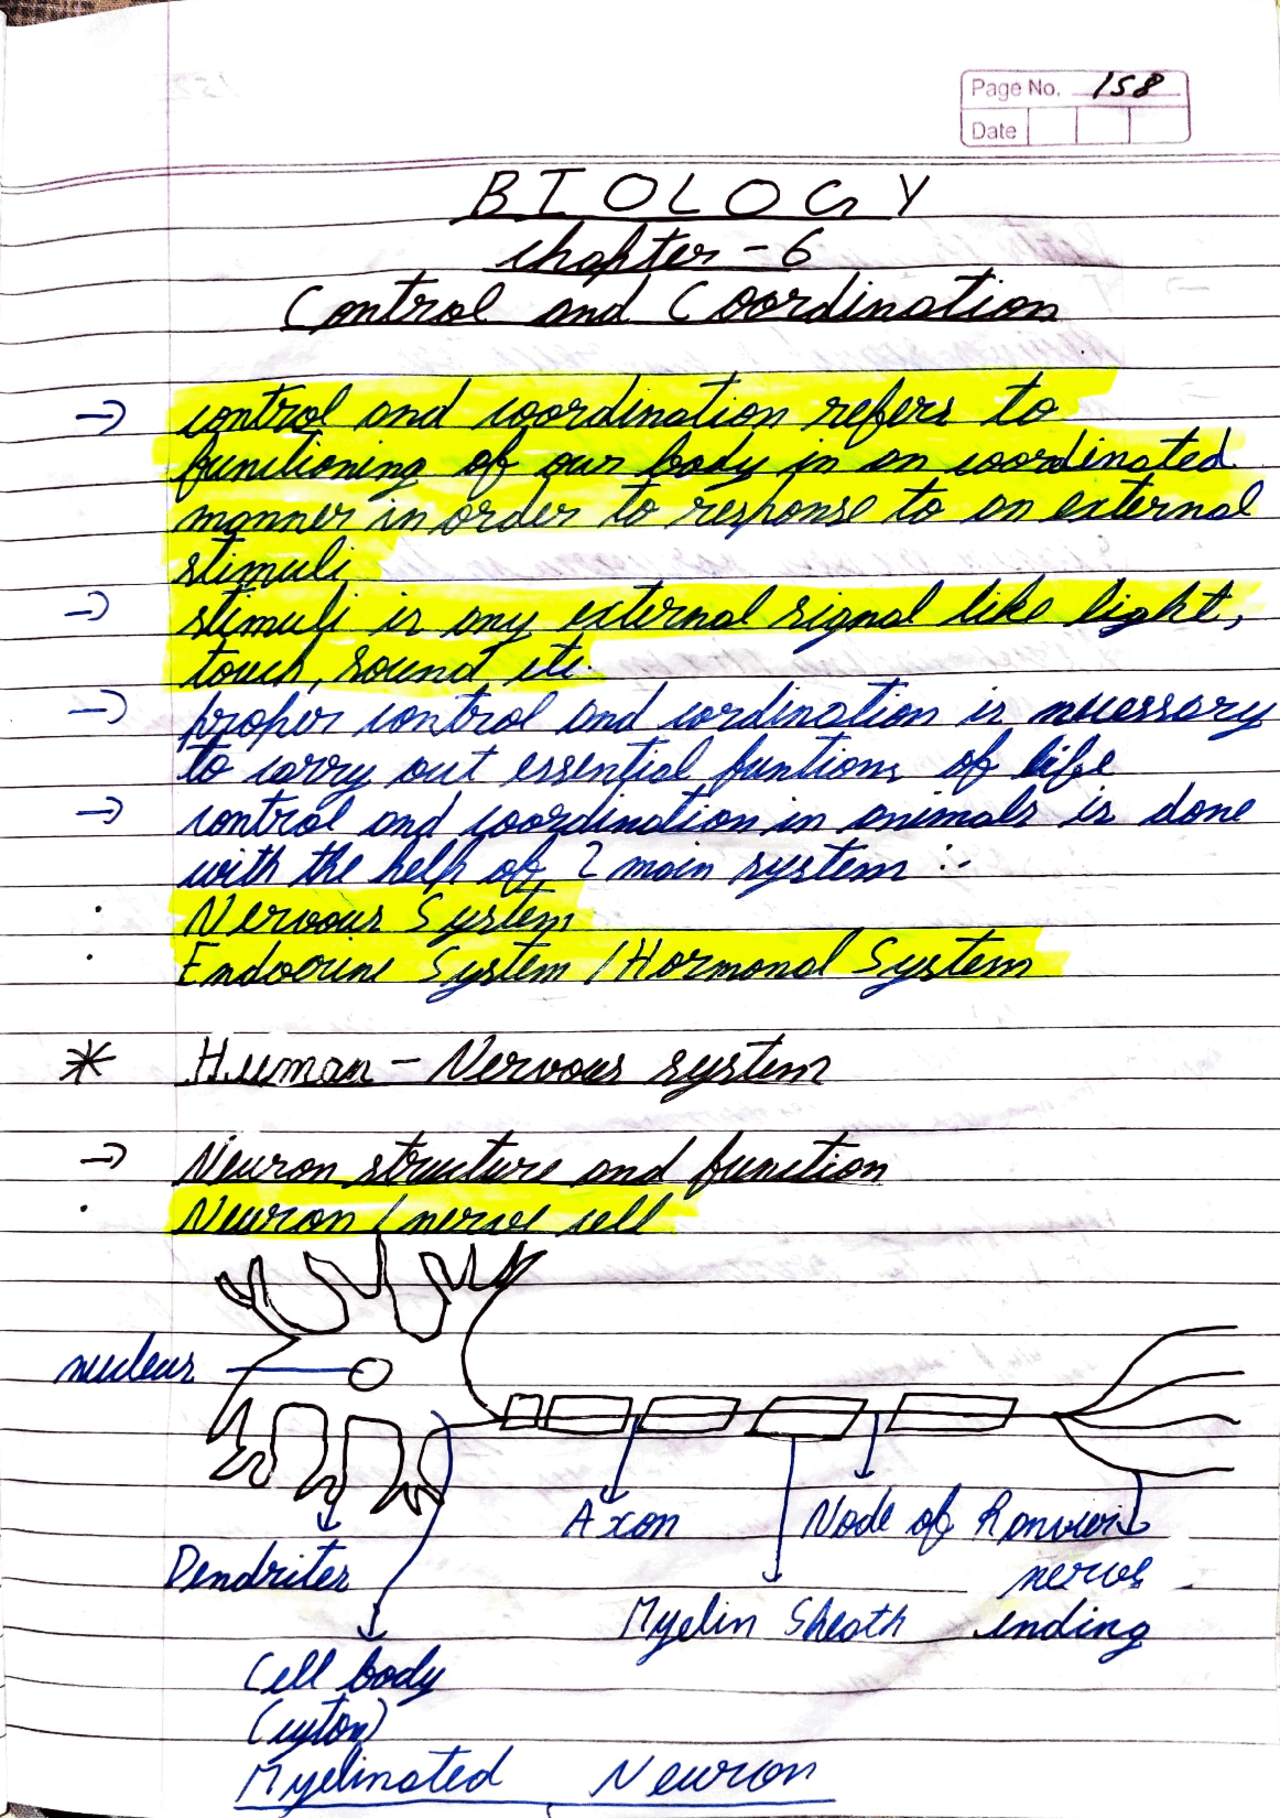 Page No. 158
Date
BIOLOGY
Chapter - 6
Control and Coordination
→ control and coordination refers to
functioning of our body in an coordinated
manner in order to response to an external
stimuli
→ stimuli is any external signal like light,
touch, sound etc.
→ proper control and cordination is necessary
to carry out essential funtions of life
→ control and coordination in animals is done
with the help of 2 main system :-
. Nervous System
. Endocrine System / Hormonal System
* Human - Nervous system
→ Neuron structure and function
. Neuron / nerve cell
nucleus
Axon
Node of Ranvier
Dendrites
nerve
Myelin Sheath
ending
Cell body
(cyton)
Myelinated Neuron